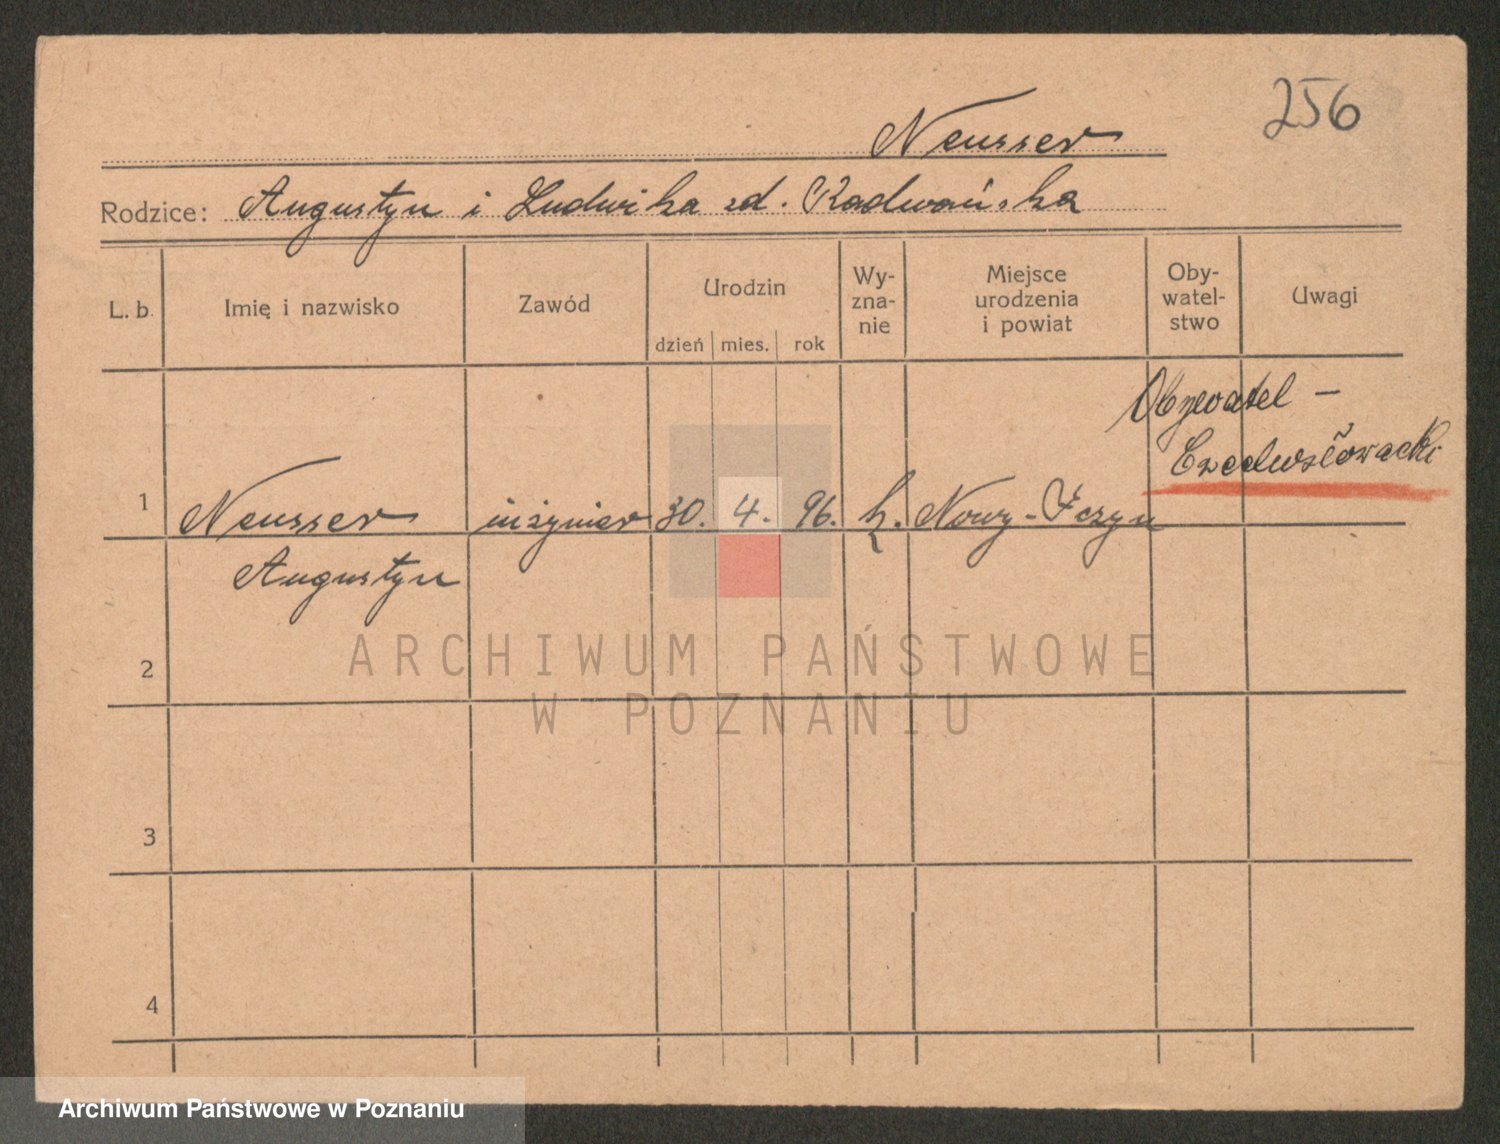 256
Neusser
Rodzice: Augustyn i Ludwika zd. Radwańska
L. b. Imię i nazwisko Zawód Urodzin dzień mies. rok Wy-zna-nie Miejsce urodzenia i powiat Oby-watel-stwo Uwagi
Obywatel –
Czechosłowacki
1 Neusser inżynier 30. 4. 96. k. Nowy-Iczyn
Augustyn
2
3
4
ARCHIWUM PAŃSTWOWE
W POZNANIU
Archiwum Państwowe w Poznaniu